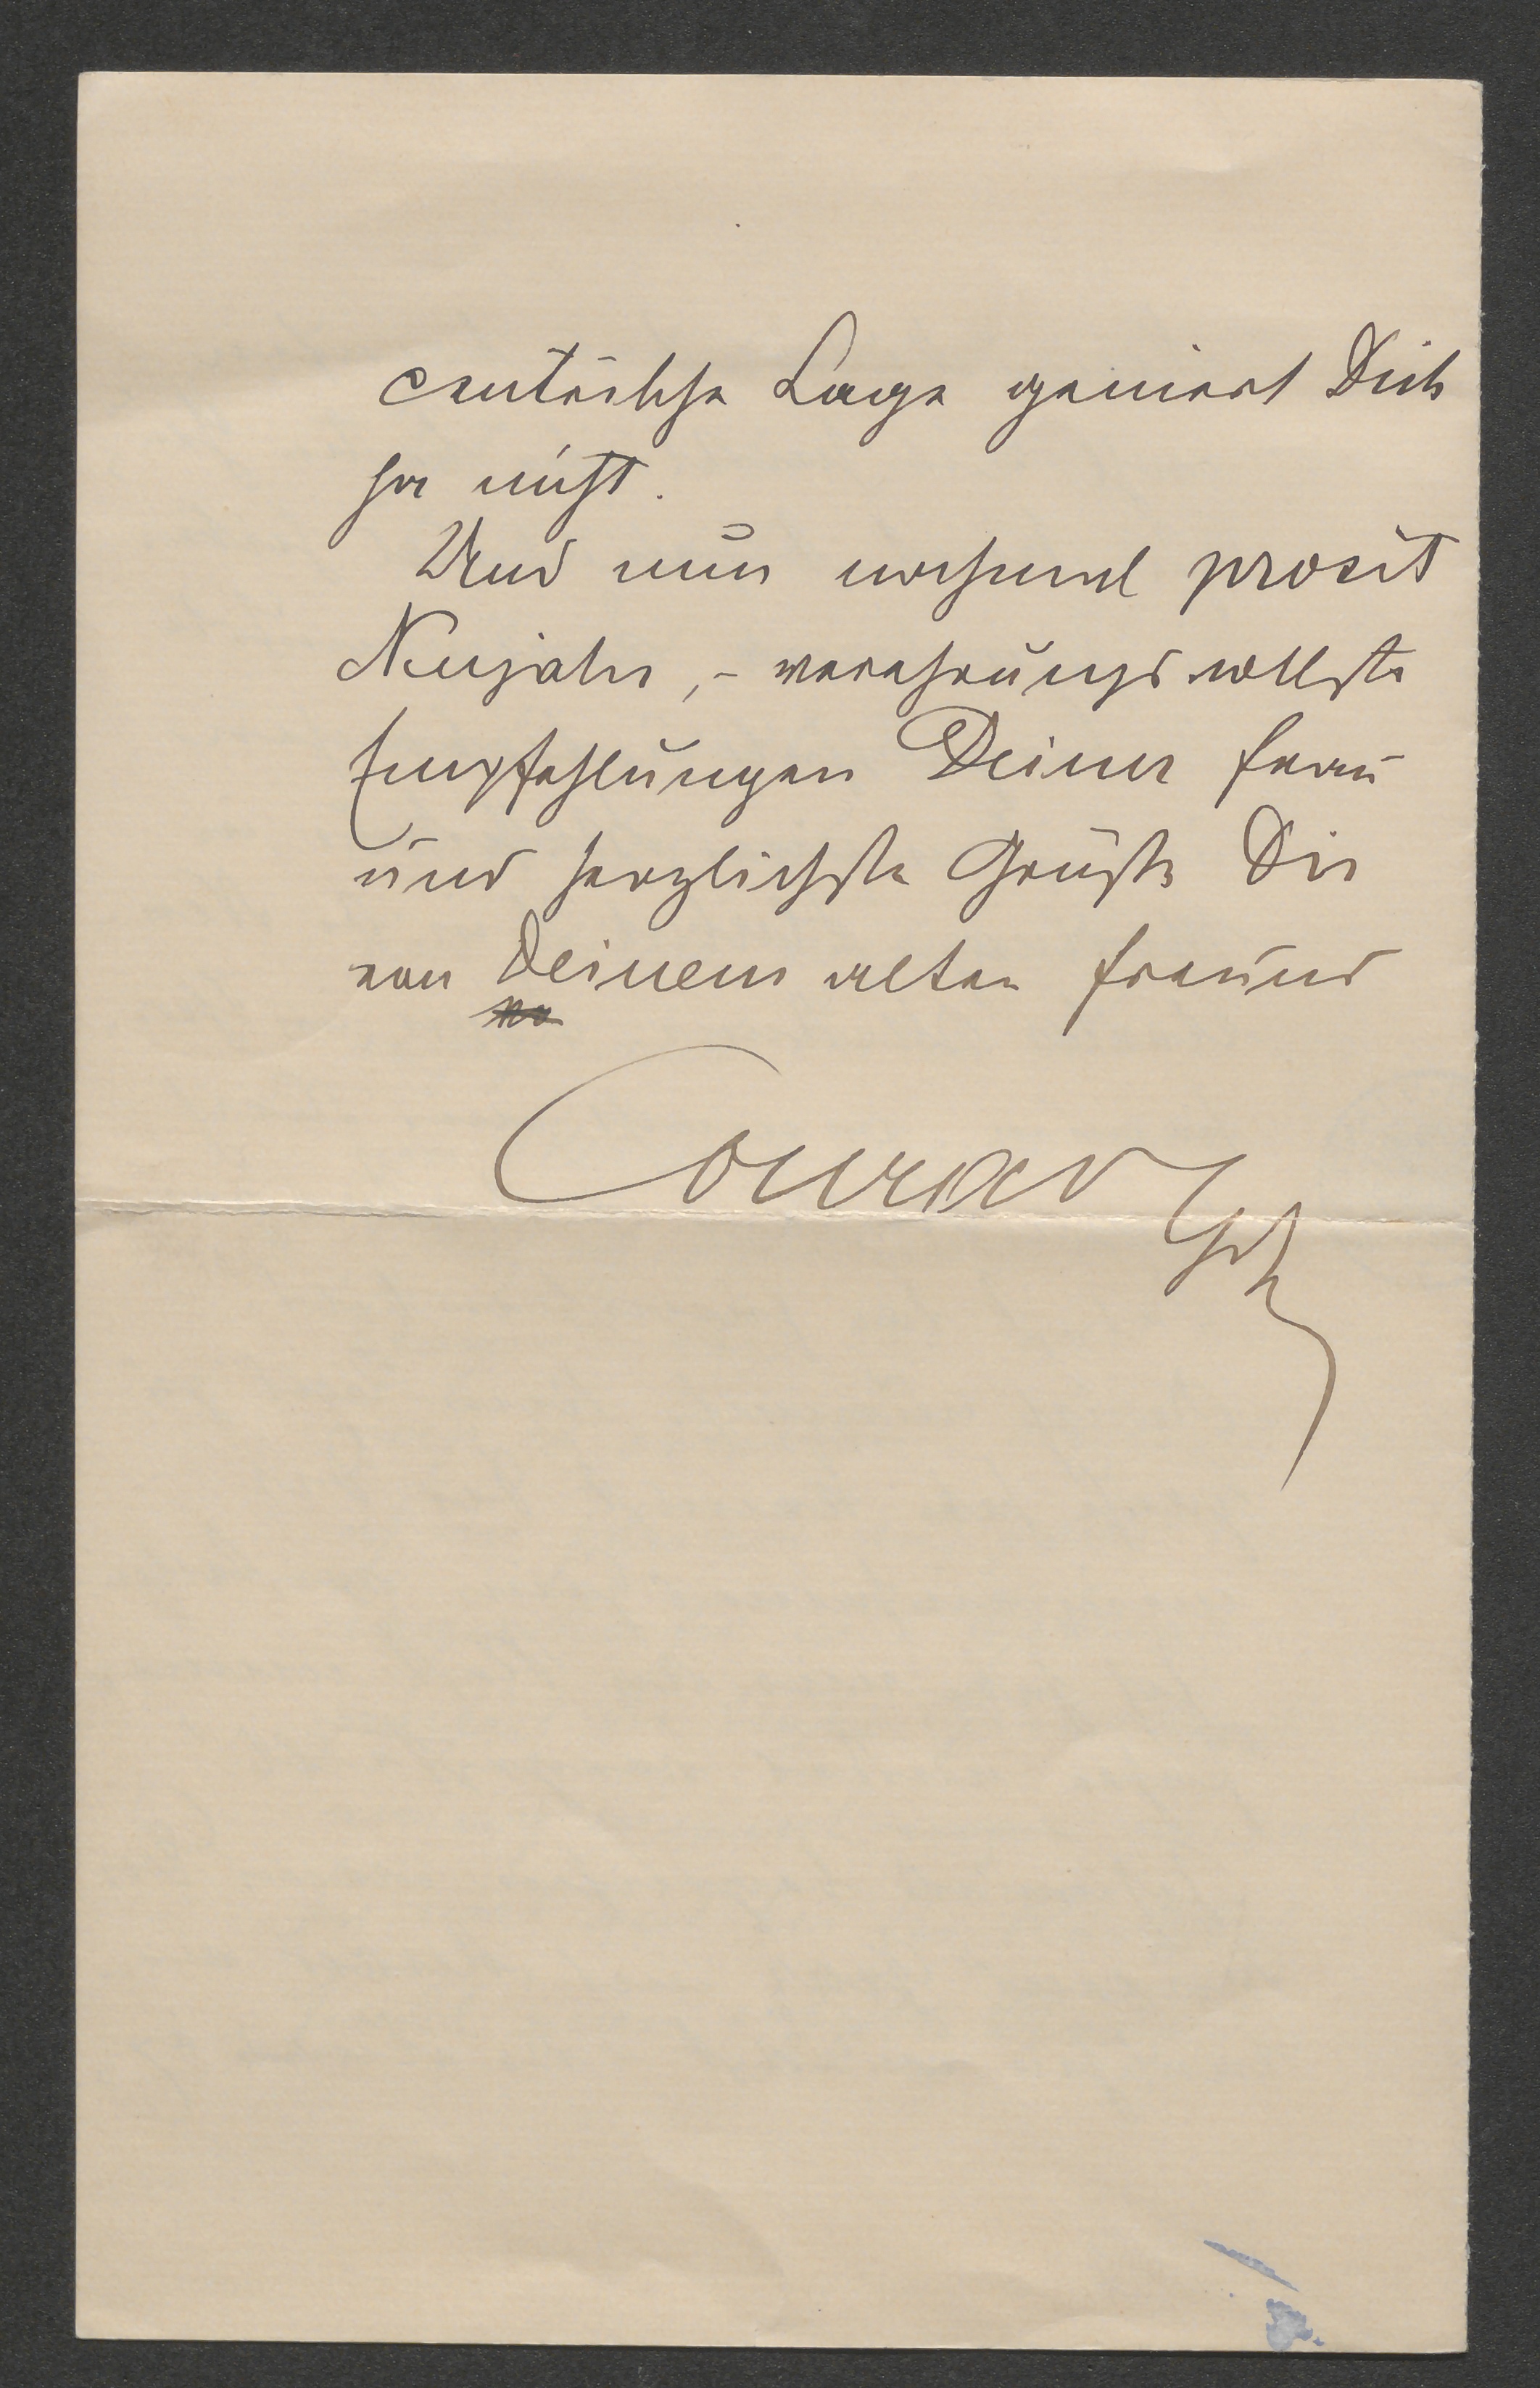 centrische Lage geniert Dich
ja nicht.
Und nun nochmal prosit
Neujahr, – verehrungsvollste
Empfehlungen Deiner Frau
und herzlichste Grüße Dir
von Deinem alten Freund
Conrad